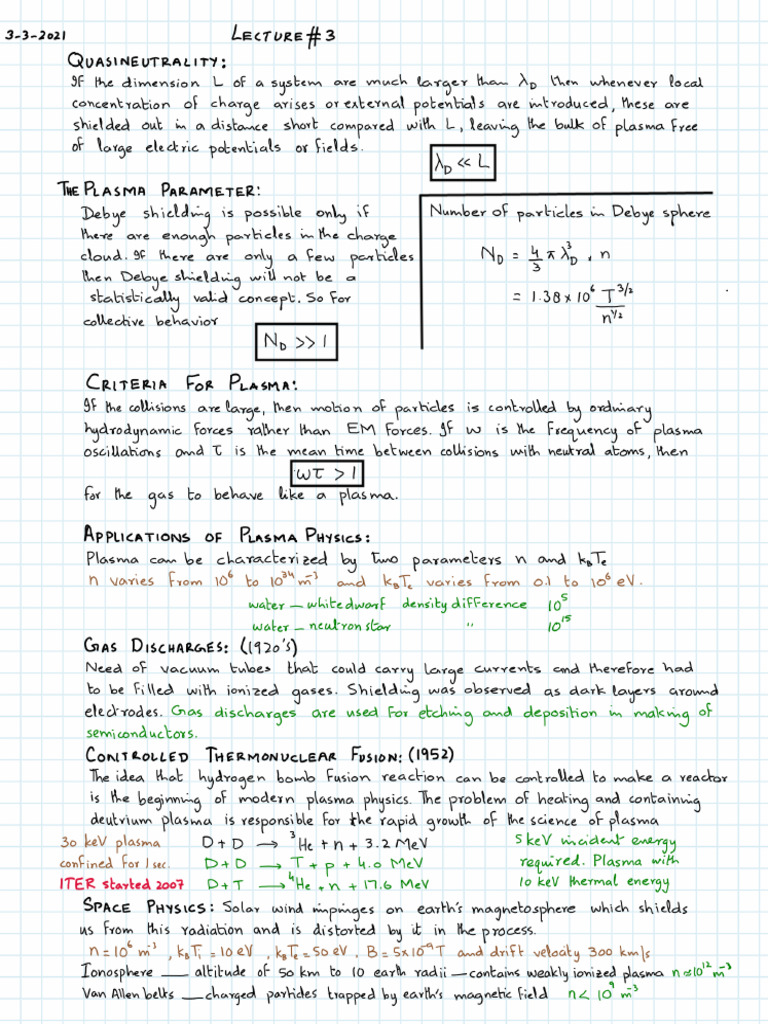 3-3-2021
LECTURE #3
QUASINEUTRALITY:
If the dimension L of a system are much larger than λ_D then whenever local
concentration of charge arises or external potentials are introduced, these are
shielded out in a distance short compared with L, leaving the bulk of plasma free
of large electric potentials or fields.
λ_D << L
THE PLASMA PARAMETER:
Debye shielding is possible only if
there are enough particles in the charge
cloud. If there are only a few particles
then Debye shielding will not be a
statistically valid concept. So for
collective behavior
N_D >> 1
Number of particles in Debye sphere
N_D = 4/3 π λ_D³ . n
= 1.38 × 10⁶ T^3/2 / n^1/2
CRITERIA FOR PLASMA:
If the collisions are large, then motion of particles is controlled by ordinary
hydrodynamic forces rather than EM forces. If w is the frequency of plasma
oscillations and τ is the mean time between collisions with neutral atoms, then
wτ > 1
for the gas to behave like a plasma.
APPLICATIONS OF PLASMA PHYSICS:
Plasma can be characterized by two parameters n and k_BT_e
n varies from 10⁶ to 10³⁴ m⁻³ and k_BT_e varies from 0.1 to 10⁶ eV.
water – white dwarf density difference 10⁵
water – neutron star " 10¹⁵
GAS DISCHARGES: (1920's)
Need of vacuum tubes that could carry large currents and therefore had
to be filled with ionized gases. Shielding was observed as dark layers around
electrodes. Gas discharges are used for etching and deposition in making of
semiconductors.
CONTROLLED THERMONUCLEAR FUSION: (1952)
The idea that hydrogen bomb fusion reaction can be controlled to make a reactor
is the beginning of modern plasma physics. The problem of heating and containing
deutrium plasma is responsible for the rapid growth of the science of plasma
30 keV plasma D + D → ³He + n + 3.2 MeV 5 keV incident energy
confined for 1 sec. D + D → T + p + 4.0 MeV required. Plasma with
ITER started 2007 D + T → ⁴He + n + 17.6 MeV 10 keV thermal energy
SPACE PHYSICS: Solar wind impinges on earth's magnetosphere which shields
us from this radiation and is distorted by it in the process.
n = 10⁶ m⁻³, k_BT_i = 10 eV, k_BT_e = 50 eV, B = 5×10⁻⁹ T and drift velocity 300 km/s
Ionosphere — altitude of 50 km to 10 earth radii – contains weakly ionized plasma n ≈ 10¹² m⁻³
Van Allen belts — charged particles trapped by earth's magnetic field n < 10⁹ m⁻³